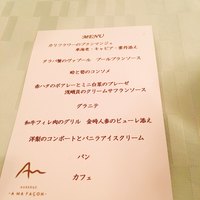 MENU
カリフラワーのブランマンジェ
車海老・キャビア・紫丹添え
タラバ蟹のヴァプール ブールブランソース
蛤と筍のコンソメ
赤ハタのポアレーとミニ白菜のブレーゼ
浅蜊貝のクリームサフランソース
グラニテ
和牛フィレ肉のグリル 金時人参のピューレ添え
洋梨のコンポートとバニラアイスクリーム
パン
カフェ
AUBERGE
-A MA FAÇON-